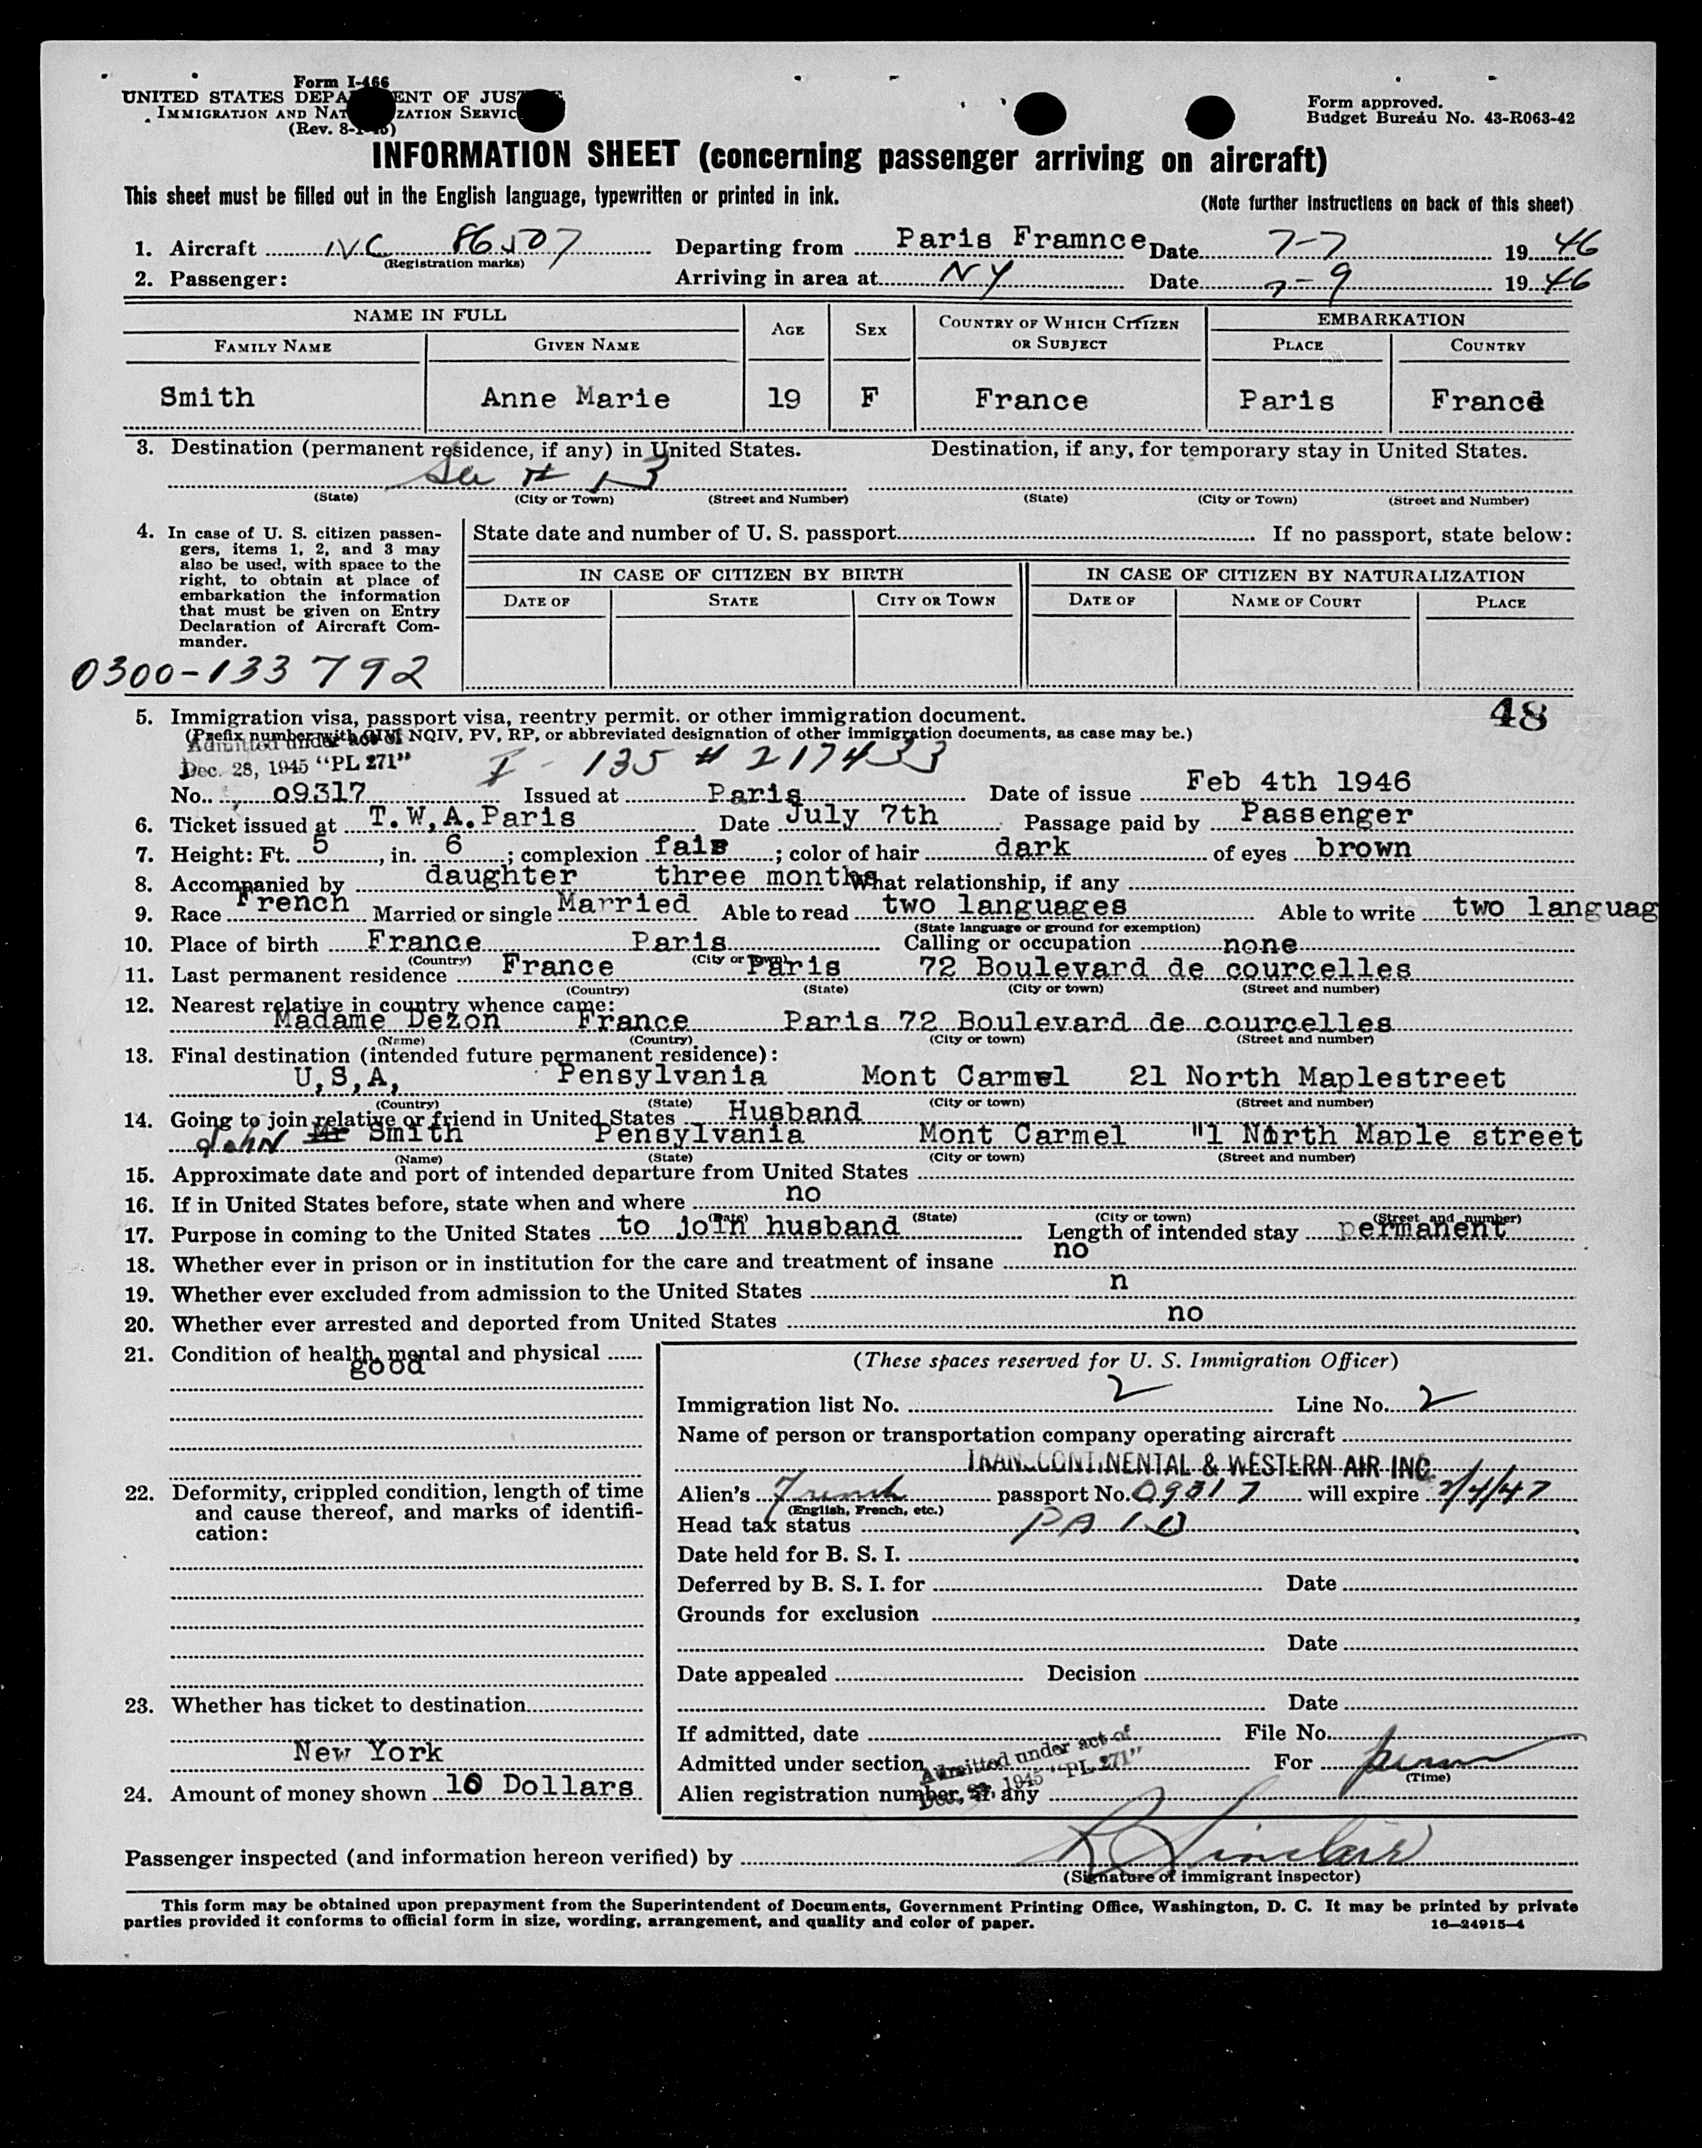 Form I-466
UNITED STATES DEPA ENT OF JUS
IMMIGRATION AND NAT ZATION SERVIC
(Rev. 8-
Form approved.
Budget Bureau No. 43-R063-42
INFORMATION SHEET (concerning passenger arriving on aircraft)
This sheet must be filled out in the English language, typewritten or printed in ink.
(Note further instructions on back of this sheet)
1. Aircraft NC 86507 Departing from Paris Framnce Date 7-7 1946
(Registration marks)
2. Passenger: Arriving in area at NY Date 7-9 1946
NAME IN FULL AGE SEX COUNTRY OF WHICH CITIZEN OR SUBJECT EMBARKATION
FAMILY NAME GIVEN NAME PLACE COUNTRY
Smith Anne Marie 19 F France Paris France
3. Destination (permanent residence, if any) in United States. Destination, if any, for temporary stay in United States.
See # 13
(State) (City or Town) (Street and Number) (State) (City or Town) (Street and Number)
4. In case of U. S. citizen passen-
gers, items 1, 2, and 3 may
also be used, with space to the
right, to obtain at place of
embarkation the information
that must be given on Entry
Declaration of Aircraft Com-
mander.
State date and number of U. S. passport If no passport, state below:
IN CASE OF CITIZEN BY BIRTH IN CASE OF CITIZEN BY NATURALIZATION
DATE OF STATE CITY OR TOWN DATE OF NAME OF COURT PLACE
0300-133792
48
5. Immigration visa, passport visa, reentry permit. or other immigration document.
(Prefix number with QIV, NQIV, PV, RP, or abbreviated designation of other immigration documents, as case may be.)
Admitted under act of
Dec. 28, 1945 "PL 271"
I-135 # 217433
No. 09317 Issued at Paris Date of issue Feb 4th 1946
6. Ticket issued at T.W.A.Paris Date July 7th Passage paid by Passenger
7. Height: Ft. 5, in. 6; complexion fair; color of hair dark of eyes brown
8. Accompanied by daughter three months What relationship, if any
9. Race French Married or single Married Able to read two languages Able to write two languag
(State language or ground for exemption)
10. Place of birth France Paris Calling or occupation none
(Country) (City or town)
11. Last permanent residence France Paris 72 Boulevard de courcelles
(Country) (State) (City or town) (Street and number)
12. Nearest relative in country whence came:
Madame Dezon France Paris 72 Boulevard de courcelles
(Name) (Country) (City or town) (Street and number)
13. Final destination (intended future permanent residence):
U,S,A, Pensylvania Mont Carmel 21 North Maplestreet
(Country) (State) (City or town) (Street and number)
14. Going to join relative or friend in United States Husband
JOHN Mr Smith Pensylvania Mont Carmel "1 North Maple street
(Name) (State) (City or town) (Street and number)
15. Approximate date and port of intended departure from United States
16. If in United States before, state when and where no
(Date) (State) (City or town) (Street and number)
17. Purpose in coming to the United States to join husband Length of intended stay permanent
18. Whether ever in prison or in institution for the care and treatment of insane no
19. Whether ever excluded from admission to the United States n
20. Whether ever arrested and deported from United States no
21. Condition of health, mental and physical
good
22. Deformity, crippled condition, length of time
and cause thereof, and marks of identifi-
cation:
23. Whether has ticket to destination
New York
24. Amount of money shown 10 Dollars
(These spaces reserved for U. S. Immigration Officer)
Immigration list No. 2 Line No. 2
Name of person or transportation company operating aircraft
TRANSCONTINENTAL & WESTERN AIR INC.
Alien's French passport No. 09317 will expire 2/4/47
(English, French, etc.)
Head tax status PAID
Date held for B. S. I.
Deferred by B. S. I. for Date
Grounds for exclusion
Date
Date appealed Decision
Date
If admitted, date File No.
Admitted under section Admitted under act of For perm
Dec. 28, 1945 "PL 271"
(Time)
Alien registration number, if any
Passenger inspected (and information hereon verified) by R Sinclair
(Signature of immigrant inspector)
This form may be obtained upon prepayment from the Superintendent of Documents, Government Printing Office, Washington, D. C. It may be printed by private
parties provided it conforms to official form in size, wording, arrangement, and quality and color of paper.
16—24915-4